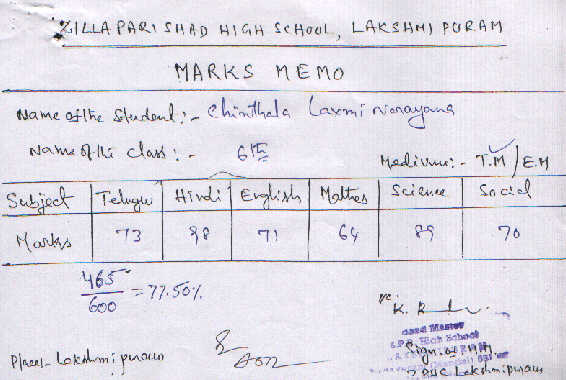 ZILLA PARISHAD HIGH SCHOOL, LAKSHMI PURAM
MARKS MEMO
Name of the Student:- Chinthala Laxmi narayana
Name of the class:- 6th
Medium:- T.M / E.M
Subject Telugu Hindi English Maths Science Social
Marks 73 98 71 64 89 70
465/600 = 77.50%
K.
Head Master
High School
Place:- Lakshmipuram
Sign. of HM
Lakshmipuram